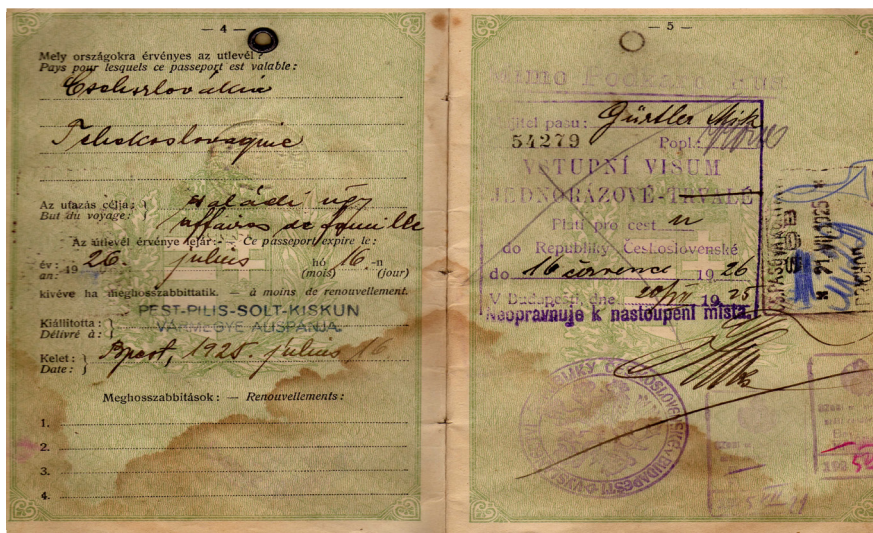 — 4 —
Mely országokra érvényes az utlevél ?
Pays pour lesquels ce passeport est valable :
Csehszlovákia
Tchekoslovaquie
Az utazás célja :
But du voyage :
családi ügy
affaires de famille
Az útlevél érvénye lejár : — Ce passeport expire le :
év : 19 26. július hó 16 -n
an : (mois) (jour)
kivéve ha meghosszabbittatik. — à moins de renouvellement.
PEST-PILIS-SOLT-KISKUN
VÁRMEGYE ALISPÁNJA.
Kiállitotta :
Délivré à :
Kelet :
Date :
Bpest, 1925. július 16
Meghosszabbítások : — Renouvellements :
1.
2.
3.
4.
— 5 —
pasu: Gürtler
54279 Popl.:
VSTUPNÍ VISUM
JEDNORÁZOVÉ-TRVALÉ
Platí pro cest
do Republiky Československé
do 16 července 19 26
V Budapešti, dne 19 25
Neopravňuje k nastoupení místa.
21.VII.1925